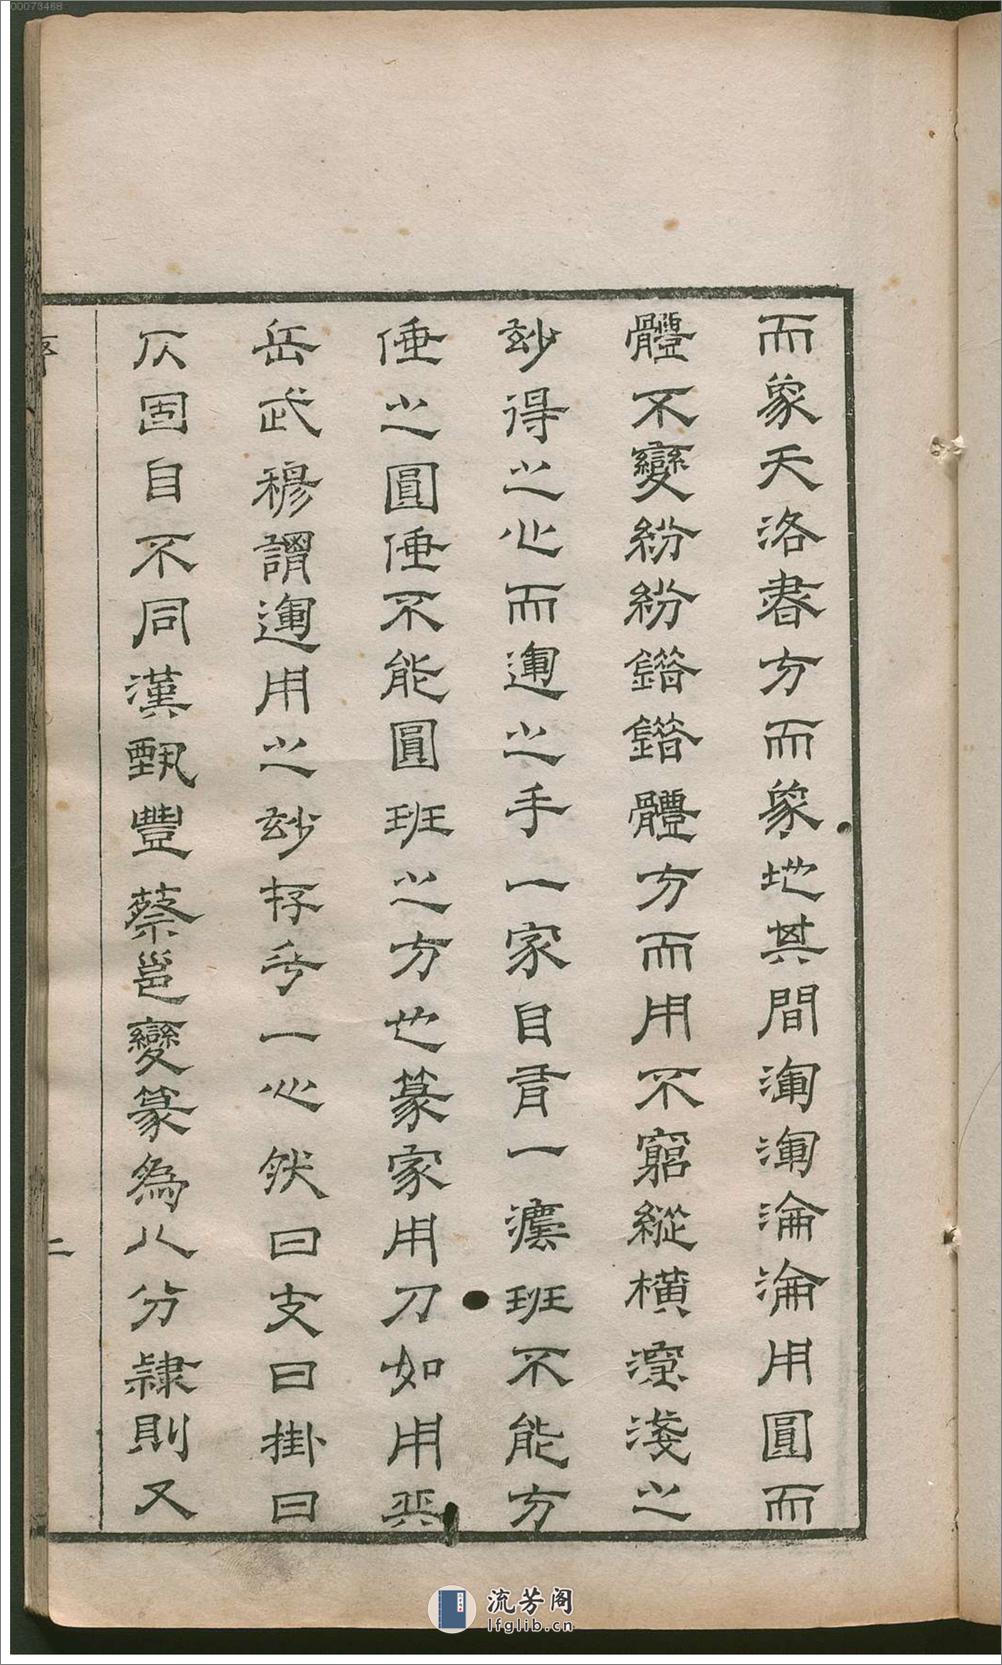 00073468
而象天洛書方而象地其間渾渾淪淪用圓而
體不變紛紛錯錯體方而用不窮縱橫深淺之
玅得之心而運之手一家自有一灋班不能方
倕之圓倕不能圓班之方也篆家用刀如用兵
岳武穆謂運用之玅存乎一心然曰支曰掛曰
仄固自不同漢甄豐蔡邕變篆為八分隸則又
序
二
流芳阁
lfglib.cn